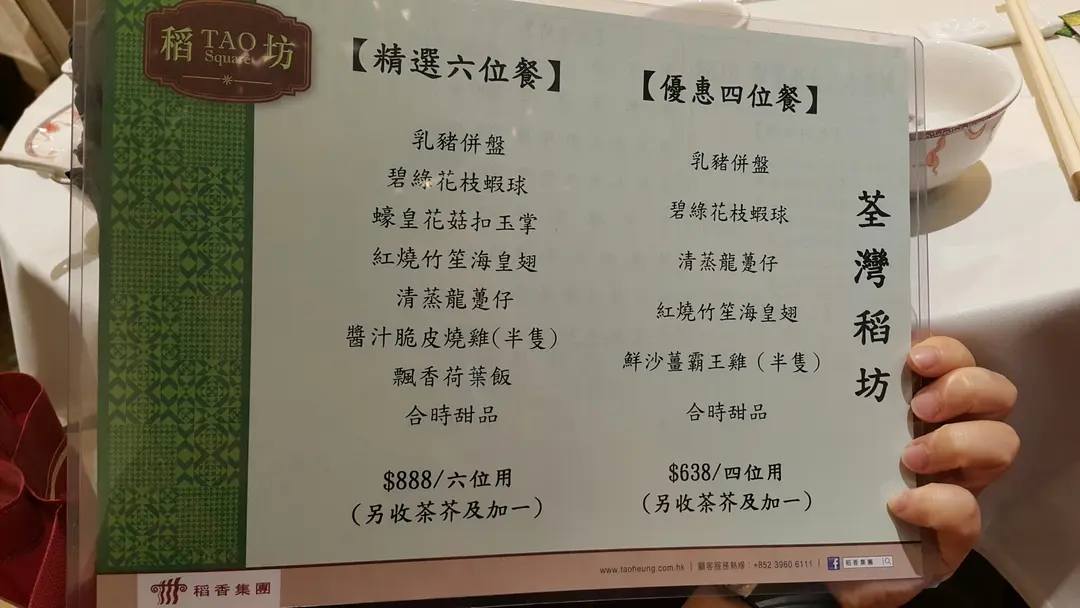 稻 TAO Square 坊
【精選六位餐】
乳豬併盤
碧綠花枝蝦球
蠔皇花菇扣玉掌
紅燒竹笙海皇翅
清蒸龍躉仔
醬汁脆皮燒雞(半隻)
飄香荷葉飯
合時甜品
$888/六位用
(另收茶芥及加一)
【優惠四位餐】
乳豬併盤
碧綠花枝蝦球
清蒸龍躉仔
紅燒竹笙海皇翅
鮮沙薑霸王雞(半隻)
合時甜品
$638/四位用
(另收茶芥及加一)
荃灣稻坊
稻香集團
www.taoheung.com.hk | 顧客服務熱線：+852 3960 6111 | f 稻香集團